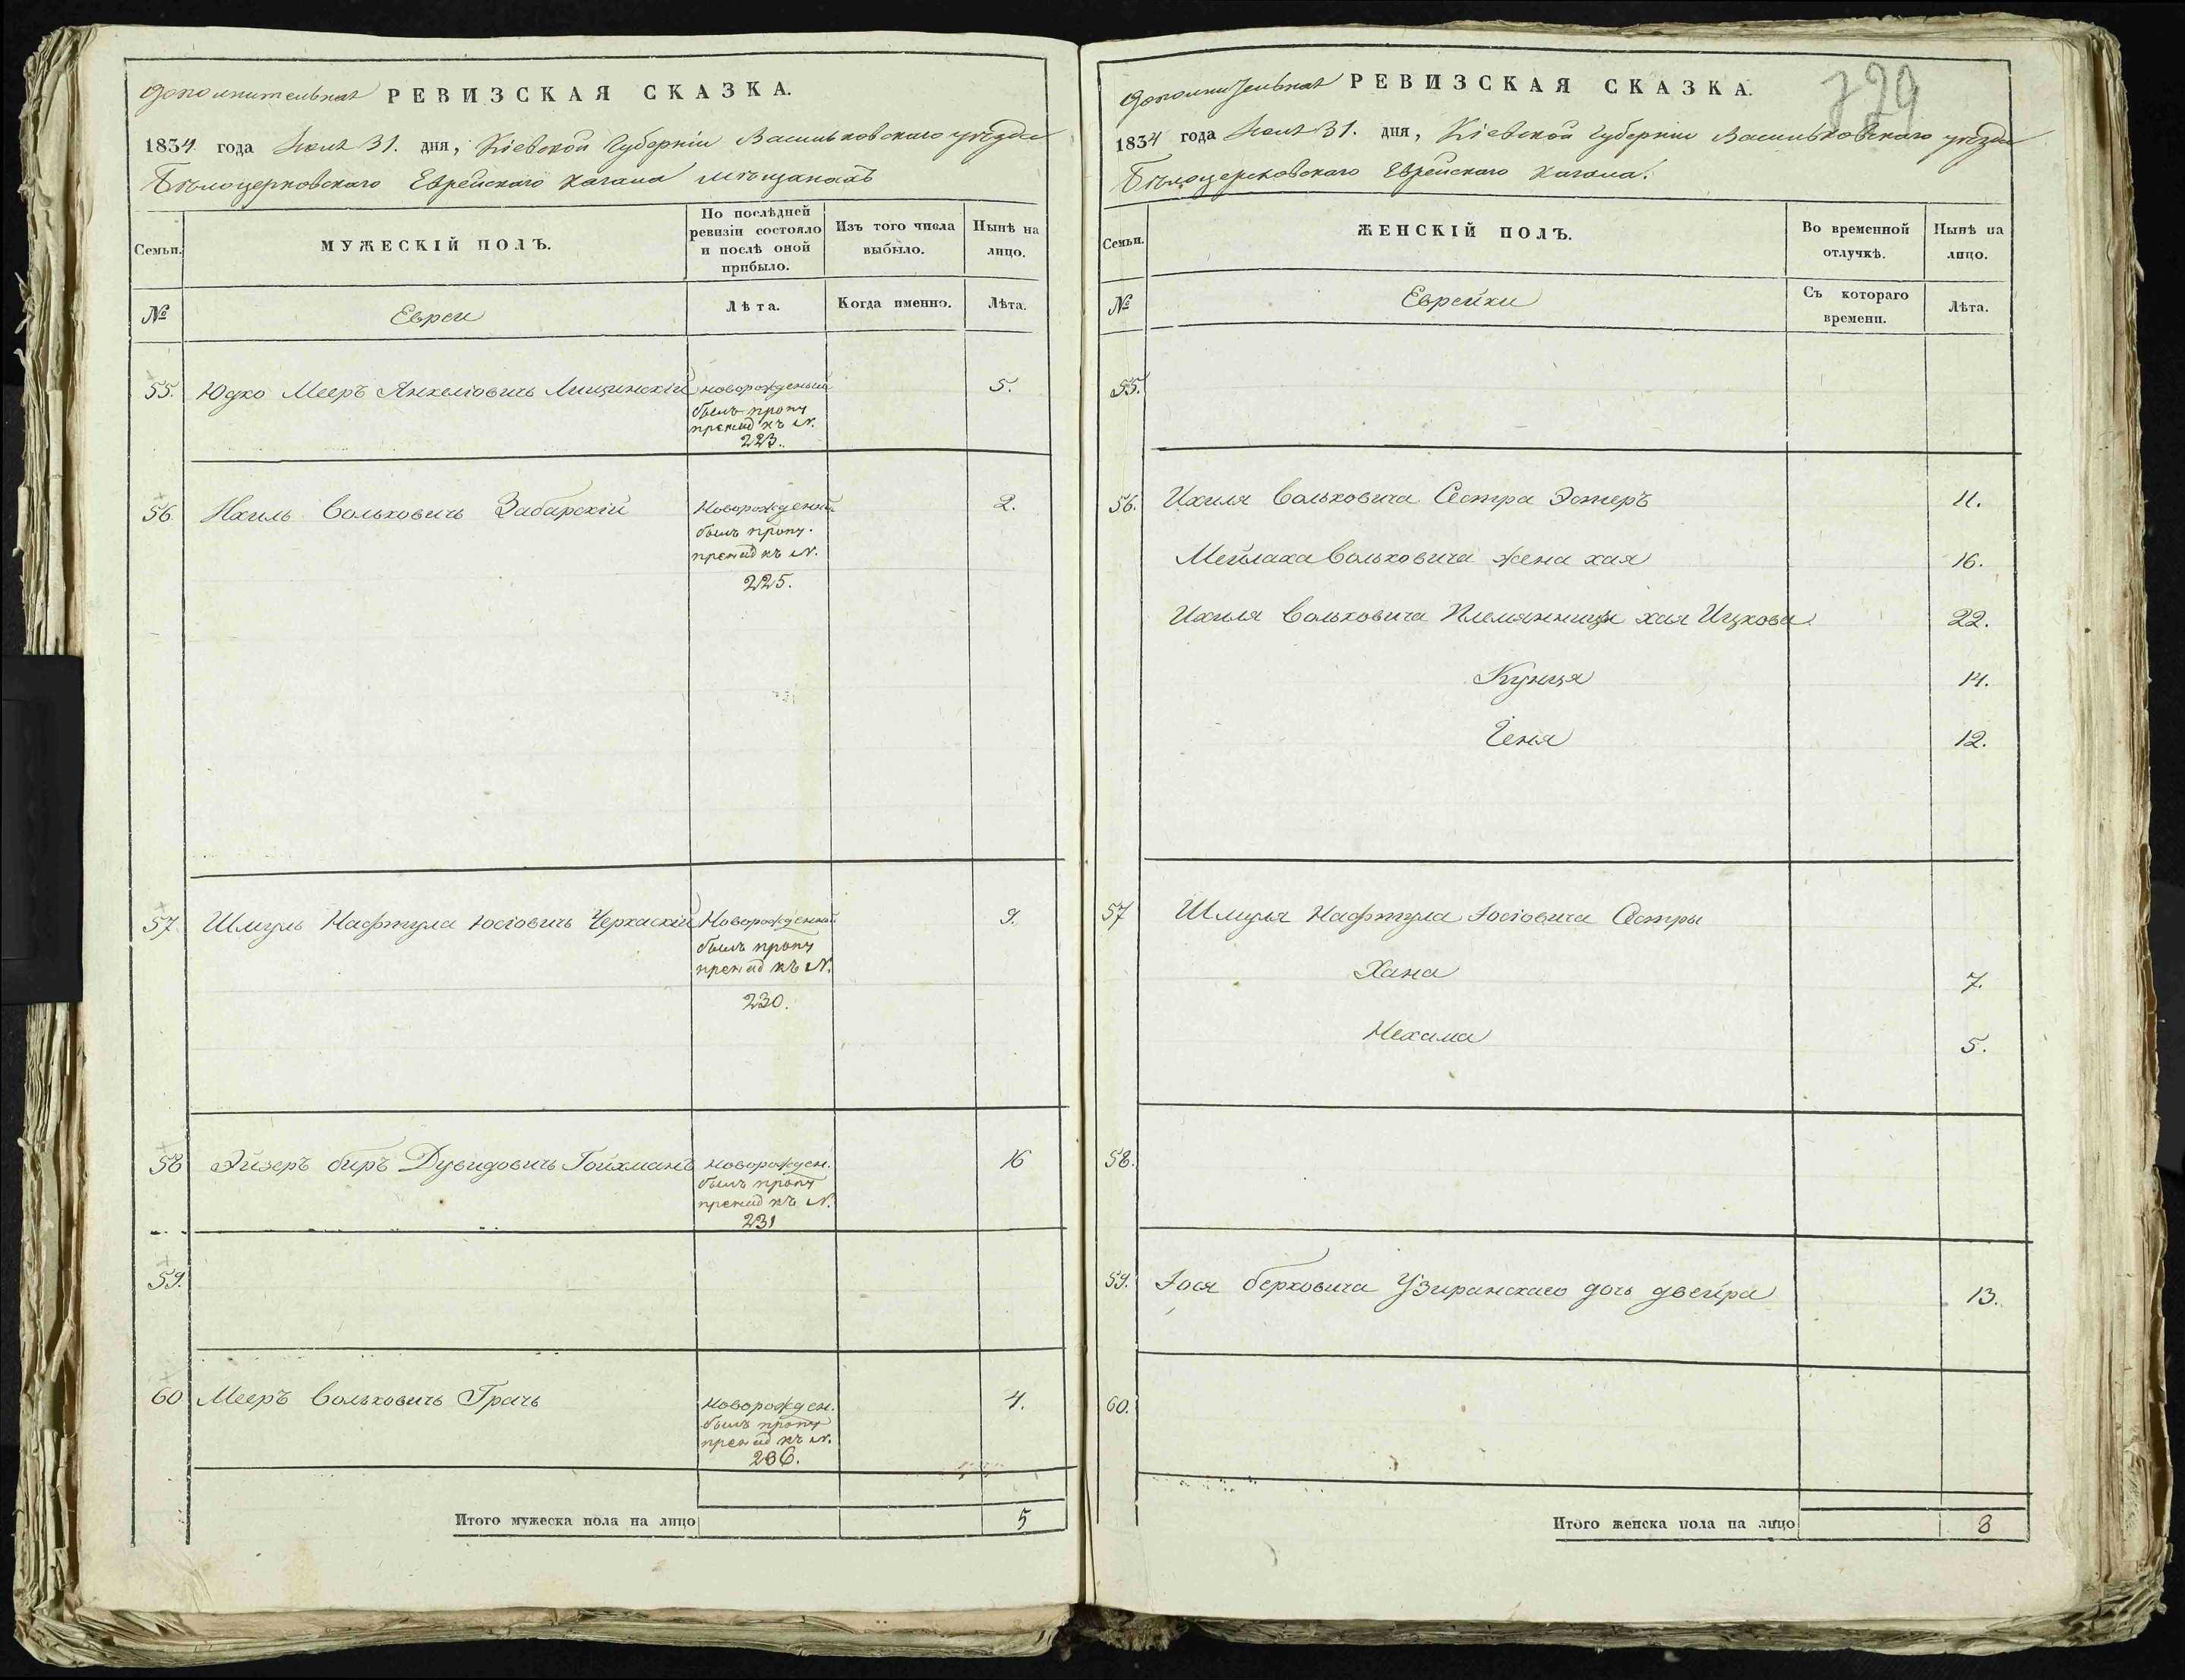 Дополнительная РЕВИЗСКАЯ СКАЗКА.
1834 года Июля 31. дня, Кіевской Губерніи Васильковскаго уѣзда
Бѣлоцерковскаго Еврейскаго Кагала мѣщанахъ
Семьи.
МУЖЕСКІЙ ПОЛЪ.
По послѣдней
ревизіи состояло
и послѣ оной
прибыло.
Изъ того числа
выбыло.
Нынѣ на
лицо.
№
Евреи
Лѣта.
Когда именно.
Лѣта.
55. Юдко Мееръ Янкеліовичь новорожденый 5.
былъ пропу
къ N.
223.
56 Ихиль Вольковичь Забарскій Новорожденый 2.
былъ пропу.
къ N.
225.
57 Шмуль Нафтула Іосіовичь Черкаскій Новорожденый 9.
былъ пропу
къ N.
230.
58 Эйзеръ беръ Дувидовичь Гойхманъ новорожден. 16
былъ пропу
къ N.
231
59.
60 Мееръ Вольковичь Грачь новорожден. 4.
былъ пропу
къ N.
236.
Итого мужеска пола на лицо 5
729
Дополнительная РЕВИЗСКАЯ СКАЗКА.
1834 года Июля 31. дня, Кіевской Губерніи Васильковскаго уѣзда
Бѣлоцерковскаго Еврейскаго Кагала.
Семьи.
ЖЕНСКІЙ ПОЛЪ.
Во временной
отлучкѣ.
Нынѣ на
лицо.
№
Еврейки
Съ котораго
времени.
Лѣта.
55.
56. Ихиля Вольковича Сестра Эстеръ 11.
Мейлаха Вольковича жена хая 16.
Ихиля Вольковича Племянницы хая Ицкова 22.
Кунця 14.
Геня 12.
57 Шмуля Нафтула Іосіовича Сестры
Хана 7.
Нехама 5.
58.
59. Іося берковича Узиранскаго дочь двейра 13.
60.
Итого женска пола на лицо 8